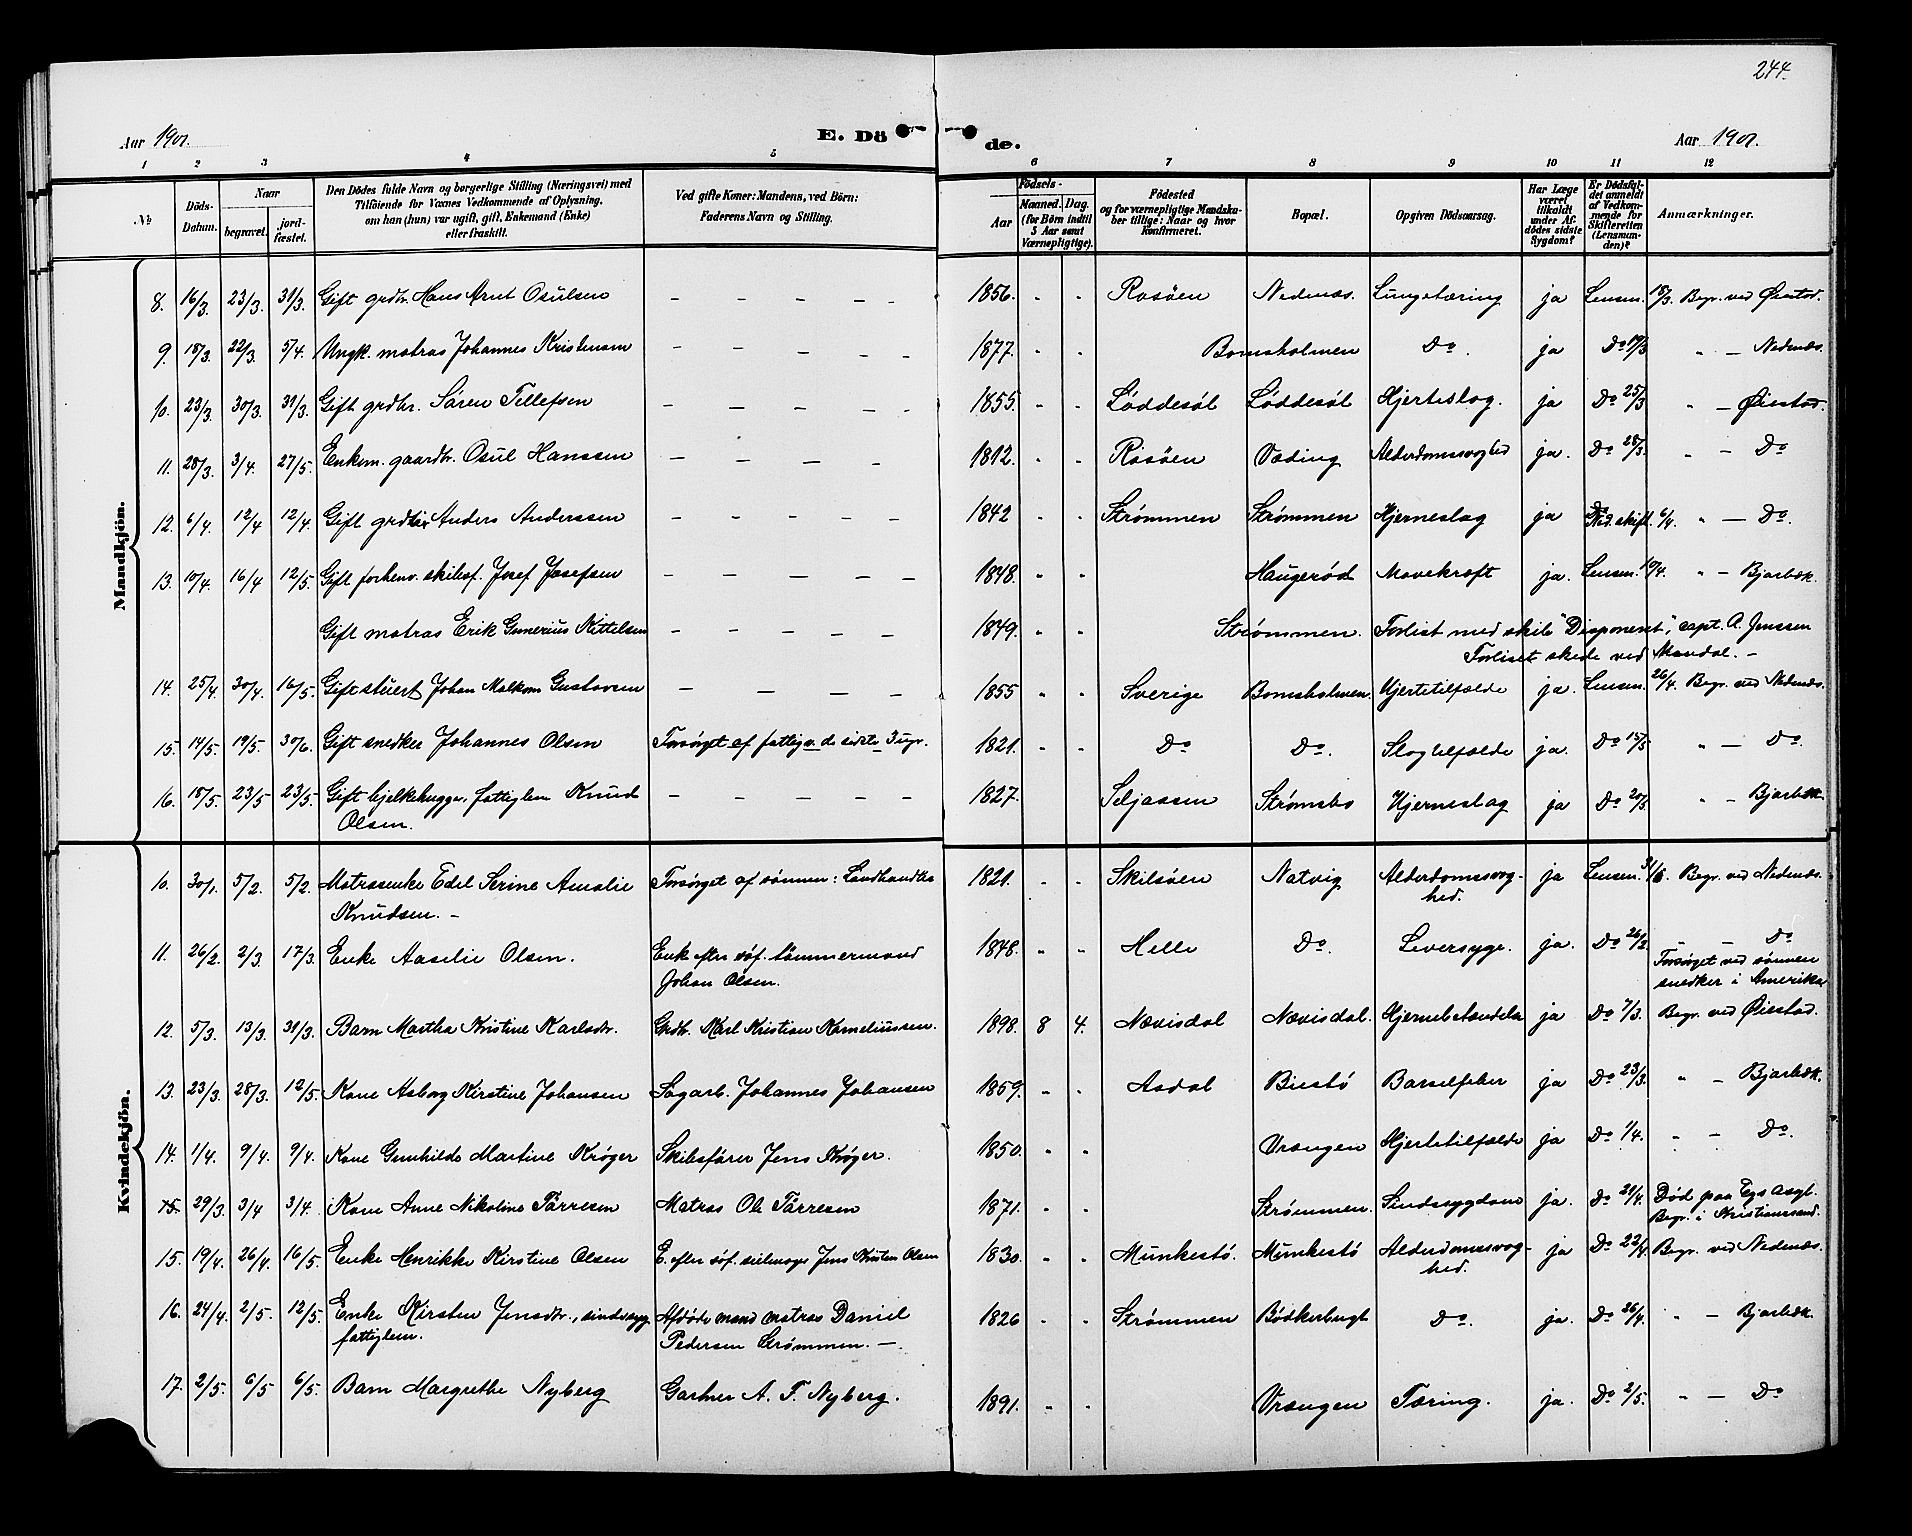 244.
Aar 1901.
E. Dö
de.
Aar 1901.
1 2 3 4 5 6 7 8 9 10 11 12
№
Döds-Datum.
Naar
begravet.
jord-fæstet.
Den Dödes fulde Navn og borgerlige Stilling (Næringsvei) med
Tilföiende for Voxnes Vedkommende af Oplysning,
om han (hun) var ugift, gift, Enkemand (Enke)
eller fraskilt.
Ved gifte Koner: Mandens, ved Börn:
Faderens Navn og Stilling.
Födsels-
Aar
Maaned. Dag.
(for Börn indtil
3 Aar samt
Værnepligtige).
Födested
og for værnepligtige Mandska-
ber tillige: Naar og hvor
Konfirmeret.
Bopæl.
Opgiven Dödsaarsag.
Har Læge
været
tilkaldt
under Af-
dödes sidste
Sygdom?
Er Dödsfal-
det anmeldt
af Vedkom-
mende for
Skifteretten
(Lensman-
den)?
Anmærkninger.
Mandkjön.
8. 16/3 23/3. 31/3. Gift grdbr. Hans Arnt Osulsen – – – – – 1856. " " Rosöen Nedenæs. Lungetæring ja Lensm. 18/3. Begr. ved Øiestad.
9. 18/3. 22/3. 5/4. Ungk. matros Johannes Kristensen – – – – – 1877. " " Bomsholmen Do. ja Do 19/3 " – Nedenæs.
10. 23/3. 30/3. 31/3. Gift grdbr. Sören Tellefsen – – – – – 1855. " " Løddesøl Løddesøl Hjerteslag. ja Do 25/3 " – Øiestad.
11. 28/3. 3/4. 27/5. Enkem. gaardbr. Osul Hanssen – – – – 1812. " " Rosöen Vading Alderdomssvaghed ja. Do 28/3. " – Do
12. 6/4. 12/4 12/4. Gift grdbr. Anders Anderssen – – – – – 1842 " " Strømmen Strømmen Hjerneslag ja Ned. skift. 6/4. " – Do.
13. 10/4. 16/4 12/5. Gift forhenv. skibsf. Josef Josefsen – – – – – 1848. " " Haugerød Mavekræft ja. Lensm. 10/4. " – Bjorbæk.
Gift matros Erik Gunerius Kittelsen – – – – – 1849. " " Strømmen. Forlist med skib "Disponent", capt. A. Jenssen
Forliset skede ved Mandal. –
14. 25/4. 30/4. 16/5. Gift stuert Johan Malkom Gustavsen – – – – 1855 " " Sverige Bomsholmen. Hjertetilfælde ja. Lensm. 26/4. Begr. ved Nedenæs.
15. 14/5. 19/5. 30/6. Gift snedker Johannes Olsen Forsörget af fattigv. de sidste 3 ugr. 1821. " " Do Do. Slagtilfælde ja. Do 15/5 " – Do.
16. 18/5. 23/5 23/5. Gift bjelkehugger, fattiglem Knud – – – – – 1827. Seljaasen Strømsbo Hjerneslag ja Do 20/5 " – Bjorbæk
Olsen.
Kvindekjön.
10. 30/1. 5/2. 5/2. Matrosenke Edel Serine Amalie Forsörget af sönnen: Landhandler 1821. " " Skilsöen Natvig Alderdomssvag- ja Lensm. Begr. ved Nedenæs.
Knudsen. – hed.
11. 26/2. 2/3. 17/3. Enke Aaselie Olsen. Enke efter söf. tömmermand 1848. " " Helle Do. Leversyge. ja. Do 26/2. – – Do
Johan Olsen. Forsörget ved sönnen
snedker i Amerika
12. 5/3. 13/3 31/3. Barn Martha Kristine Karlsdtr. Grdbr. Karl Kristian Korneliussen. 1898. 8 4. Nævisdal Nævisdal. Hjernebetændelse ja Do 7/3. Begr. ved Øiestad.
13. 23/3. 28/3. 12/5. Kone Asborg Kirstine Johansen Sagarb. Johannes Johansen 1859. " " Asdal Biestö Barselfeber ja Do 23/3. " – Bjorbæk.
14. 1/4. 9/4. 9/4. Kone Gunhilde Martine Krøger Skibsfører Jens Krøger. 1850. " " Vrængen Hjertetilfælde ja Do 1/4. " – Do.
15. 29/3. 3/4 3/4. Kone Anne Nikoline Tårresen Matros Ole Tårresen 1871. " " Strømmen. Sindssygdom ja. Do 21/4. Död paa Egs asyl.
Begr. i Kristianssand.
15. 19/4. 26/4. 16/5. Enke Henrikke Kirstine Olsen E. efter söf. seilmager Jens Kristen Olsen 1830. " " Munkestö. Munkestö Alderdomssvag- ja Do 22/4. Begr. ved Nedenæs.
hed.
16. 24/4. 2/5. 12/5. Enke Kirsten Jensdtr., sindssyg Afdöde mand matros Daniel 1826 " " Strømmen Bödkerbugt Do. ja. Do 26/4. " – Bjorbæk.
fattiglem. Pedersen Strømmen. –
17. 2/5. 6/5 6/5. Barn Margrethe Nyberg Gartner A. F. Nyberg. 1891. " " Vrængen Tæring. ja. Do 2/5. " – Do